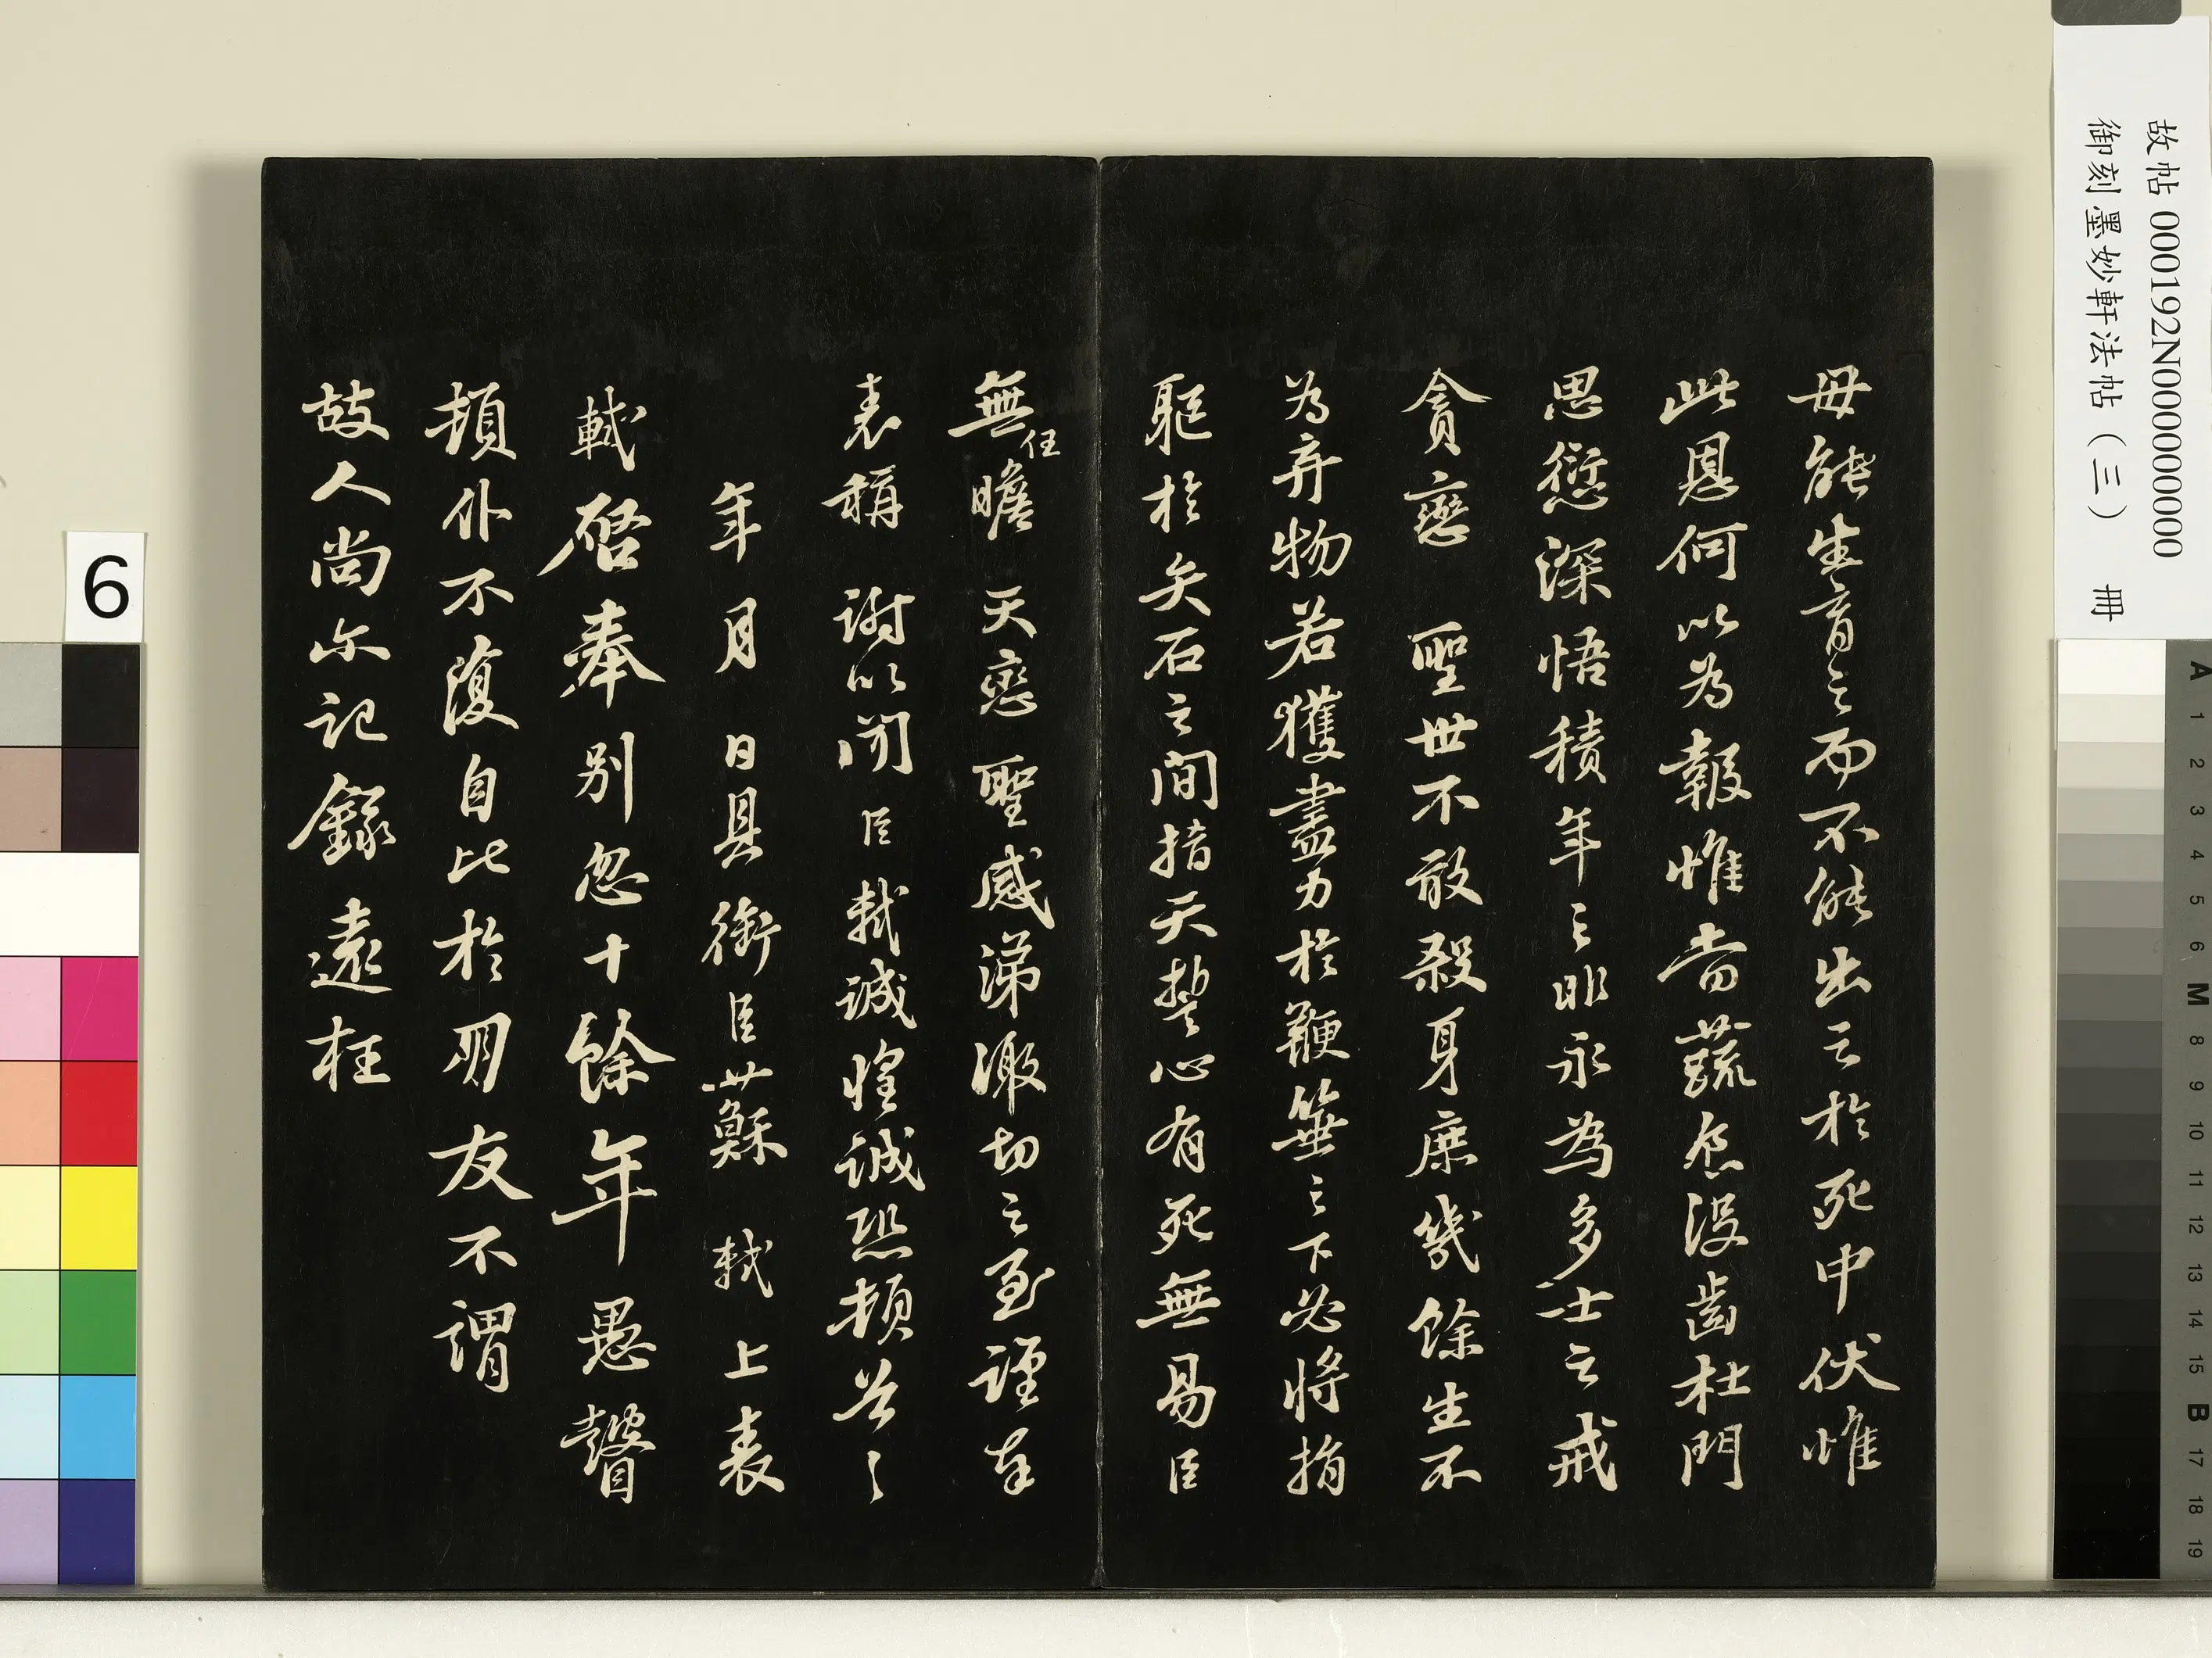 故帖 000192N000000000
御刻墨妙軒法帖（三） 冊
母能生育之而不能出之於死中伏惟
此恩何以為報惟當蔬食沒齒杜門
思愆深悟積年之非永為多士之戒
貪戀 聖世不敢殺身庶幾餘生不
為弃物若獲盡力於鞭箠之下必將捐
軀於矢石之間指天誓心有死無易臣
無任瞻 天戀 聖感涕激切之至謹奉
表稱 謝以聞 臣軾誠惶誠恐頓首々
年 月 日具銜臣蘇 軾 上表
軾啓奉別忽十餘年愚瞽
頓仆不復自比於朋友不謂
故人尚尓記錄遠枉
6
A 1 2 3 4 5 6 M 8 9 10 11 12 13 14 15 B 17 18 19